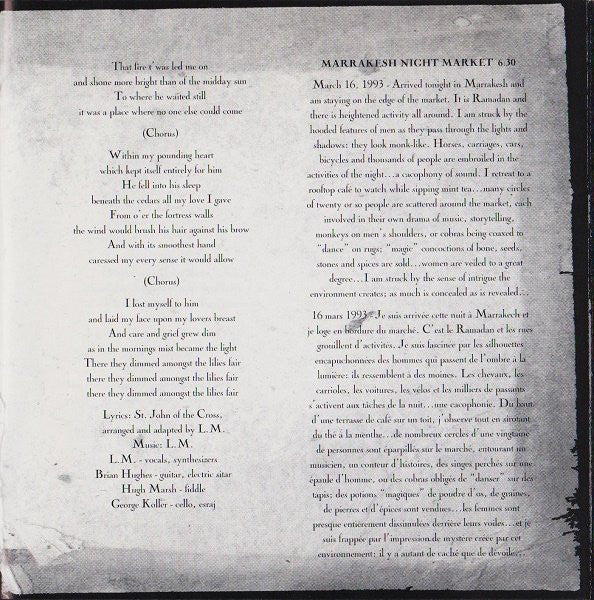 That fire t'was led me on
and shone more bright than of the midday sun
To where he waited still
it was a place where no one else could come
(Chorus)
Within my pounding heart
which kept itself entirely for him
He fell into his sleep
beneath the cedars all my love I gave
From o'er the fortress walls
the wind would brush his hair against his brow
And with its smoothest hand
caressed my every sense it would allow
(Chorus)
I lost myself to him
and laid my face upon my lovers breast
And care and grief grew dim
as in the mornings mist became the light
There they dimmed amongst the lilies fair
there they dimmed amongst the lilies fair
there they dimmed amongst the lilies fair
Lyrics: St. John of the Cross,
arranged and adapted by L.M.
Music: L.M.
L.M. - vocals, synthesizers
Brian Hughes - guitar, electric sitar
Hugh Marsh - fiddle
George Koller - cello, esraj
MARRAKESH NIGHT MARKET 6.30
March 16, 1993 - Arrived tonight in Marrakesh and
am staying on the edge of the market. It is Ramadan and
there is heightened activity all around. I am struck by the
hooded features of men as they pass through the lights and
shadows: they look monk-like. Horses, carriages, cars,
bicycles and thousands of people are embroiled in the
activities of the night...a cacophony of sound. I retreat to a
rooftop café to watch while sipping mint tea...many circles
of twenty or so people are scattered around the market, each
involved in their own drama of music, storytelling,
monkeys on men's shoulders, or cobras being coaxed to
"dance" on rugs; "magic" concoctions of bone, seeds,
stones and spices are sold...women are veiled to a great
degree...I am struck by the sense of intrigue the
environment creates; as much is concealed as is revealed...
16 mars 1993 - Je suis arrivée cette nuit à Marrakech et
je loge en bordure du marché. C'est le Ramadan et les rues
grouillent d'activités. Je suis fascinée par les silhouettes
encapuchonnées des hommes qui passent de l'ombre à la
lumière: ils ressemblent à des moines. Les chevaux, les
carrioles, les voitures, les vélos et les milliers de passants
s'activent aux tâches de la nuit...une cacophonie. Du haut
d'une terrasse de café sur un toit, j'observe tout en sirotant
du thé à la menthe...de nombreux cercles d'une vingtaine
de personnes sont éparpillés sur le marché, entourant un
musicien, un conteur d'histoires, des singes perchés sur une
épaule d'homme, ou des cobras obligés de "danser" sur des
tapis; des potions "magiques" de poudre d'os, de graines,
de pierres et d'épices sont vendues...les femmes sont
presque entièrement dissimulées derrière leurs voiles...et je
suis frappée par l'impression de mystère créée par cet
environnement: il y a autant de caché que de dévoilé...